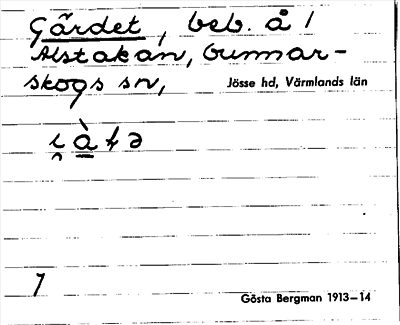 Gärdet, beb. å 1
Alstakan, Gunnar-
skogs sn,
Jösse hd, Värmlands län
Gösta Bergman 1913–14